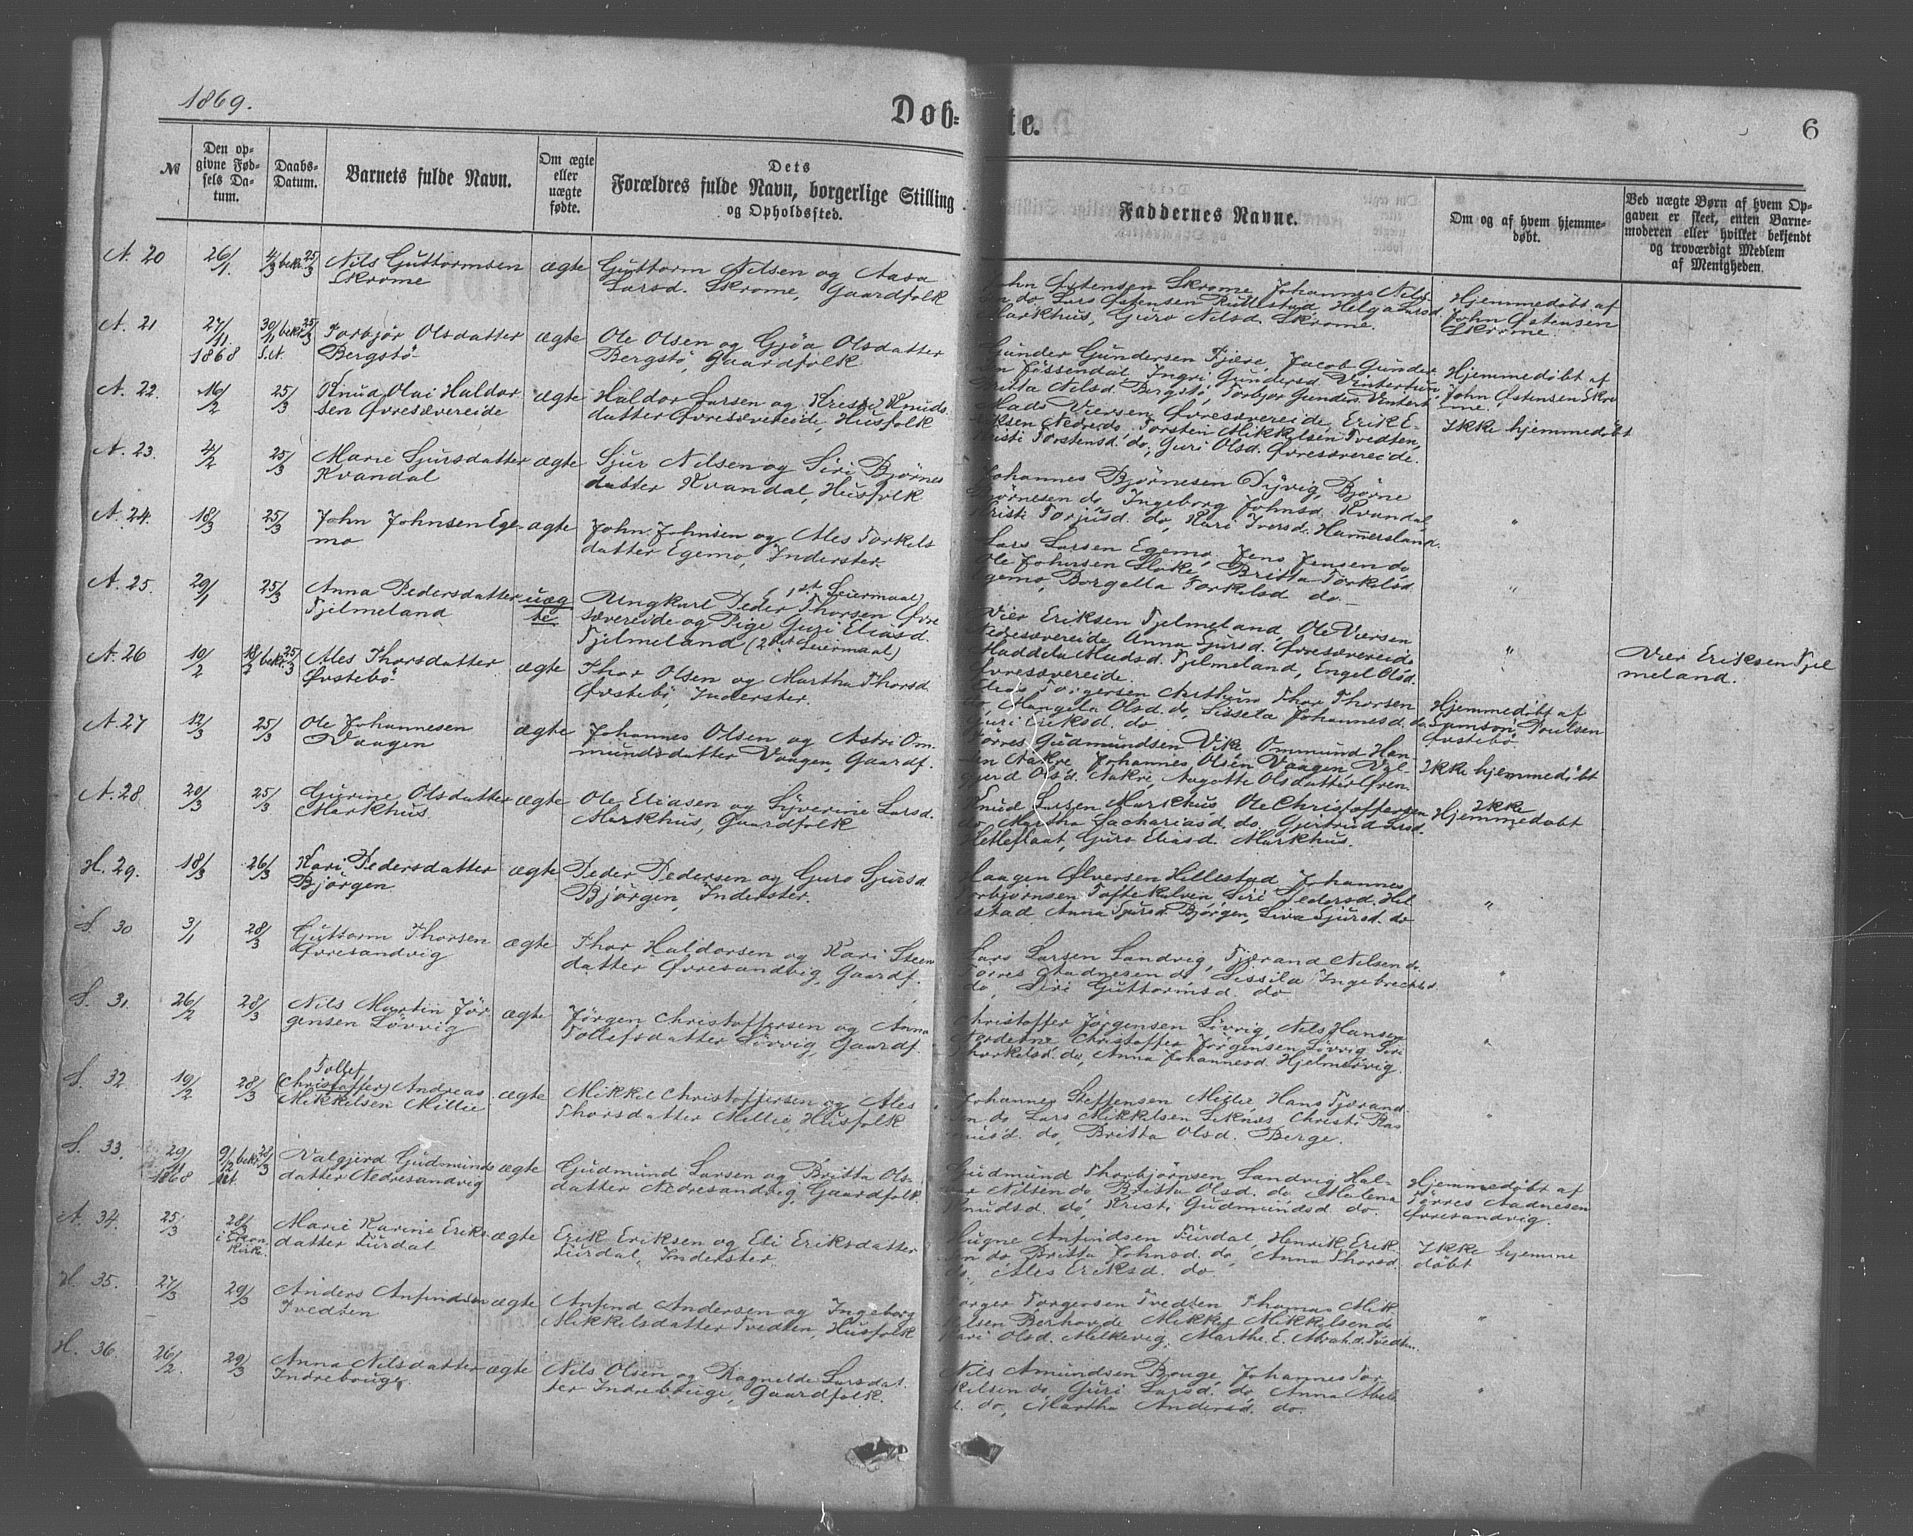 1869.
Døb=
te.
6
№
Den op-
givne Fød-
sels Da-
tum.
Daabs-
Datum.
Barnets fulde Navn.
Om ægte
eller
uægte
fødte.
Dets
Forældres fulde Navn, borgerlige Stilling
og Opholdssted.
Faddernes Navne.
Om og af hvem hjemme-
døbt.
Ved uægte Børn af hvem Op-
gaven er skeet, enten Barne-
moderen eller hvilket bekjendt
og troværdigt Medlem
af Menigheden.
A. 20 26/1. 4/3 bekr. 25/3 Nils Guttormsen ægte Guttorm Nilsen og Aasa
Skrome Larsd. Skrome, Gaardfolk
John Østensen Skrome, Johannes Nils-
sen do Lars Østensen Rullestad Helga Larsd.
Markhus, Guro Nilsd. Skrome.
Hjemmedøbt af
John Østensen
Skrome.
A. 21 27/11. 30/11 bekr. 25/3 Torbjør Olsdatter ægte Ole Olsen og Gjøa Olsdatter
1868 s. A. Bergstö Bergstö, Gaardfolk
Gunder Gundersen Fjære, Jacob Gunder-
sen Fössendal Ingri Gundersd Vintertun,
Britta Nilsd. Bergstö, Torbjør Gunders. Vintert
Hjemmedøbt af
John Østensen Skro-
me.
A. 22. 16/2 25/3 Knud Olai Haldor ægte Haldor Larsen og Kristi Knuds-
sen Øvresævereide datter Øvresævereide, Husfolk
Mads Viersen Øvresævereide, Erik E-
riksen Nedre do. Torsten Mikkelsen Tvedten,
Kristi Torstensd. do, Guri Olsd. Øvresævereide.
Ikke hjemmedøbt
A. 23. 4/2 25/3 Marie Sjursdatter ægte Sjur Nilsen og Siri Bjørnes
Kvandal datter Kvandal, Husfolk
Johannes Bjørnesen Dyvig, Bjørne
Bjørnesen do, Ingeborg Johnsd. Kvandal,
Kristi Torjusd. do, Kari Iversd. Hamersland.
"
A. 24. 18/3 25/3 John Johnsen Ege- ægte John Johnsen og Ales Torkels
mo datter Egemo, Inderster.
Lars Larsen Egemo, Jens Jensen do
Ole Johnsen Slake, Britta Torkelsd.
Egemo, Borgella Torkelsd do-
"
A. 25. 29/1 25/3 Anna Pedersdatter uæg Ungkarl Peder Thorsen Øvre (1st. Leiermaal)
Fjelmeland te sævereide og Pige Guri Eliasd.
Fjelmeland (2det Leiermaal)
Vier Eriksen Fjelmeland, Ole Viersen
Nedresævereide Anna Sjursd. Øvresævereide
Maddela Madsd. Fjelmeland, Engel Olsd.
Øvresævereide.
"
Vier Eriksen Fjel
meland.
A. 26 10/2 18/2 bekr. 25/3 Ales Thorsdatter ægte Thor Olsen og Martha Thorsd.
Øvstebö Øvstebö, Inderster.
Elias Torgersen Arthun, Thor Thorsen
do, Mangela Olsd. do, Sissela Johannesd. do
Guri Eriksd. do
Hjemmedøbt af
Samson Poulsen
Øvstebö
A. 27 12/3 25/3 Ole Johannesen ægte Johannes Olsen og Astri Om-
Vaagen mundsdatter Vaagen, Gaardf.
Tørres Gudmundsen Vike, Ommund Han-
sen Aakre, Johannes Olsen Vaagen Val-
gjerd Olsd. Aakre, Aagotte Olsdatter Øren.
Ikke hjemmedøbt
A. 28. 20/3 25/3 Gurine Olsdatter ægte Ole Eliasen og Syverine Larsd.
Markhus Markhus, Gaardfolk
Knud Larsen Markhus, Ole Christoffersen
do, Martha Zachariasd. do, Gjertrud Larsd.
Hetleflaat, Guro Eliasd. Markhus.
Ikke
Hjemmedøbt
H. 29. 18/3 26/3 Kari Pedersdatter ægte Peder Pedersen og Guro Sjursd
Bjørgen Bjørgen, Inderster.
Haagen Ølversen Hillestad Johannes
Torbjørnsen Toftekalven, Siri Pedersd. Hil
lestad Anna Sjursd. Bjørgen, Siva Sjursd. do
"
S. 30 3/1 28/3 Guttorm Thorsen ægte Thor Haldorsen og Kari Steen
Øvresandvig datter Øvresandvig, Gaardf.
Lars Larsen Sandvig, Fjærand Nilsen do
Tørres Aadnesen do, Sissila Ingebrechtsd
do, Siri Guttormsd. do
"
S. 31. 26/2 28/3 Nils Martin Jör ægte Jørgen Christoffersen og Anna
gensen Lövvig Tollefsdatter Lövvig, Gaardf.
Christoffer Jørgensen Lövvig, Nils Hansen
Nordenne Christoffer Jørgensen Lövvig Siri
Thorkelsd. do, Anna Johannesd. Hjelmervig.
"
S. 32 19/2 28/3 (Christoffer) Tollef Andreas ægte Mikkel Christoffersen og Ales
Mikkelsen Millie Thorsdatter Millie, Husfolk
Johannes Steffensen Millie, Hans Fjærand-
sen do, Lars Mikkelsen Seknes Christi Ras
musd. do, Britta Olsd. Berge.
"
S. 33. 29/11 9/12 bekr. 28/3 Valgjerd Gudmunds ægte Gudmund Larsen og Britta Ols-
1868 s. A. datter Nedresandvig datter Nedresandvig, Gaardfolk
Gudmund Thorbjørnsen Sandvig Hal-
vor Nilsen do, Britta Olsd. do, Malena
Knudsd. do, Kristi Gudmundsd. do.
Hjemmedøbt af
Tørres Aadnesen
Øvresandvig.
A. 34. 25/3 28/3 Marie Karine Eriks- ægte Erik Eriksen og Eli Eriksdatter
datter Furdal Furdal, Inderster.
Hugne Anfindsen Furdal, Henrik Erik-
sen do Britta Johnsd. do, Anna Thorsd
do, Ales Eriksd. do
Ikke hjemme
døbt
H. 35. 27/3 29/3 Anders Anfindsen ægte Anfind Andersen og Ingeborg
Tvedten Mikkelsdatter Tvedten, Husfolk
Torger Torgersen Tvedten Thomas Mik
kelsen Berhovde Mikkel Mikkelsen do
Kari Olsd. Melkevig, Marthe E. Abrah.d. Tvedten.
"
H. 36. 26/2 29/3 Anna Nilsdatter ægte Nils Olsen og Ragnilde Larsdat-
Indrebouge. ter Indrebouge, Gaardfolk.
Nils Amundsen Bouge, Johannes Tor
kelsen do, Guri Larsd. do, Anna Abels
d. do, Martha Andersd. do.
"